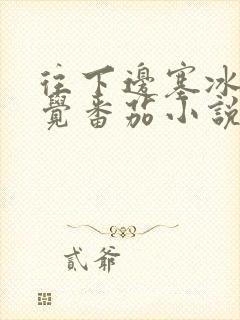 往下邊塞冰
覺番茄小說
貳爺